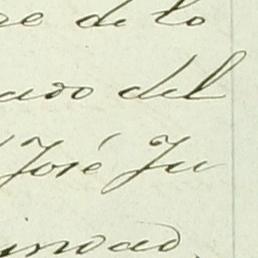 re de lo
cado del
José Ju
unidad